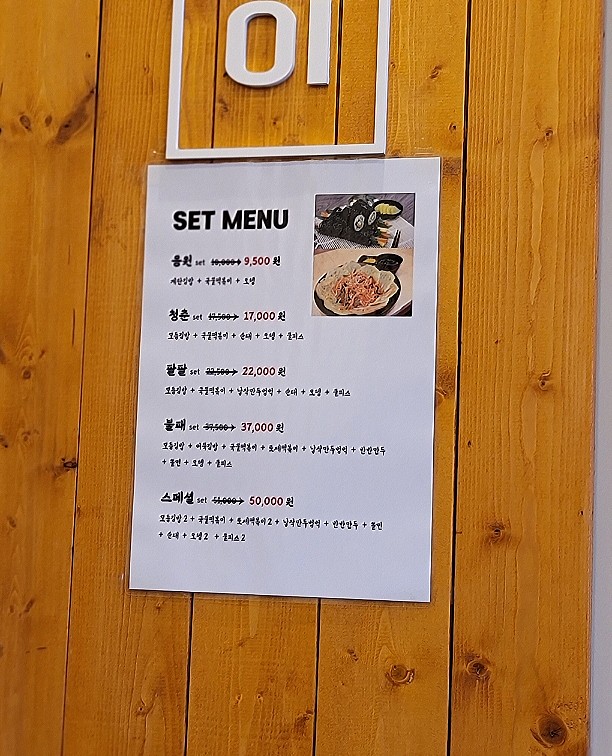 이
SET MENU
응원 set 10,000→ 9,500 원
계란김밥 + 국물떡볶이 + 오뎅
청춘 set 17,500→ 17,000 원
모듬김밥 + 국물떡볶이 + 순대 + 오뎅 + 쿨피스
팔팔 set 22,500→ 22,000 원
모듬김밥 + 국물떡볶이 + 납작만두무침 + 순대 + 오뎅 + 쿨피스
불패 set 37,500→ 37,000 원
모듬김밥 + 어묵김밥 + 국물떡볶이 + 로제떡볶이 + 납작만두무침 + 반반만두
+ 쫄면 + 오뎅 + 쿨피스
스페셜 set 51,000→ 50,000 원
모듬김밥2 + 국물떡볶이 + 로제떡볶이2 + 납작만두무침 + 반반만두 + 쫄면
+ 순대 + 오뎅2 + 쿨피스2